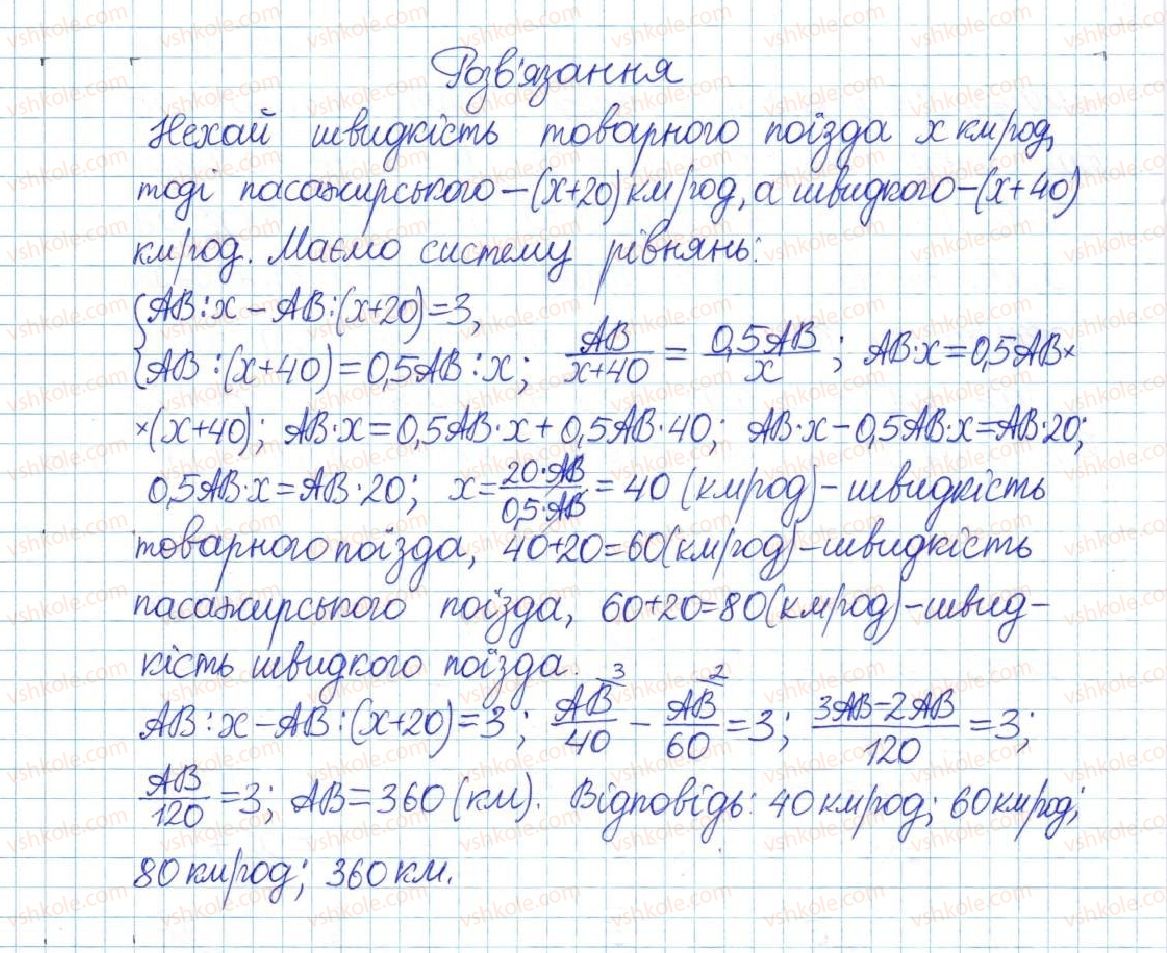 Розв'язання
Нехай швидкість товарного поїзда x км/год,
тоді пасажирського – (x+20) км/год, а швидкого – (x+40)
км/год. Маємо систему рівнянь:
{AB : x – AB : (x+20) = 3,
{AB : (x+40) = 0,5AB : x; AB/(x+40) = 0,5AB/x; AB·x = 0,5AB×
×(x+40); AB·x = 0,5AB·x + 0,5AB·40; AB·x – 0,5AB·x = AB·20;
0,5AB·x = AB·20; x = 20·AB/0,5·AB = 40 (км/год) – швидкість
товарного поїзда, 40+20=60 (км/год) – швидкість
пасажирського поїзда, 60+20=80 (км/год) – швид-
кість швидкого поїзда.
AB : x – AB : (x+20) = 3; AB^3/40 – AB^2/60 = 3; (3AB–2AB)/120 = 3;
AB/120 = 3; AB = 360 (км). Відповідь: 40 км/год; 60 км/год;
80 км/год; 360 км.
vshkole.com